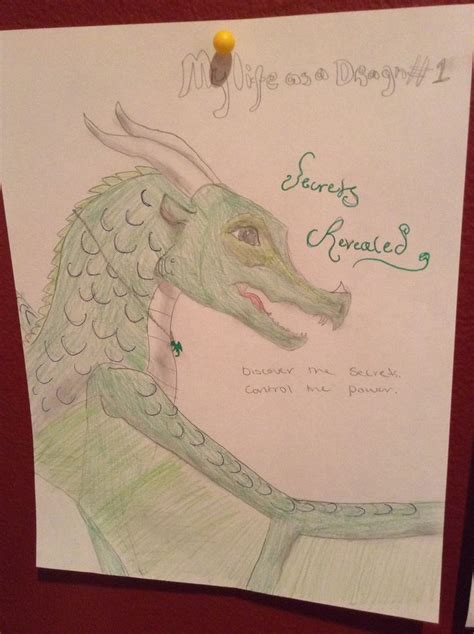 My life as a Dragon #1
Secrets
Revealed
Discover the Secrets.
Control the power.